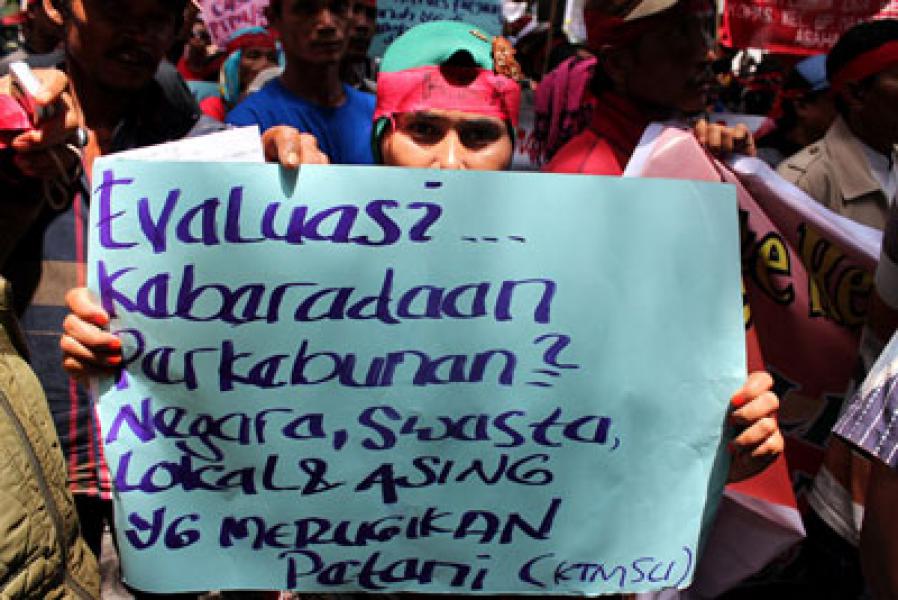 Evaluasi ...
Kabaradaan
Parkabunan?
Negara, Swasta,
Lokal & ASING
YG MERUGIKAN
Patani (KTMSU)